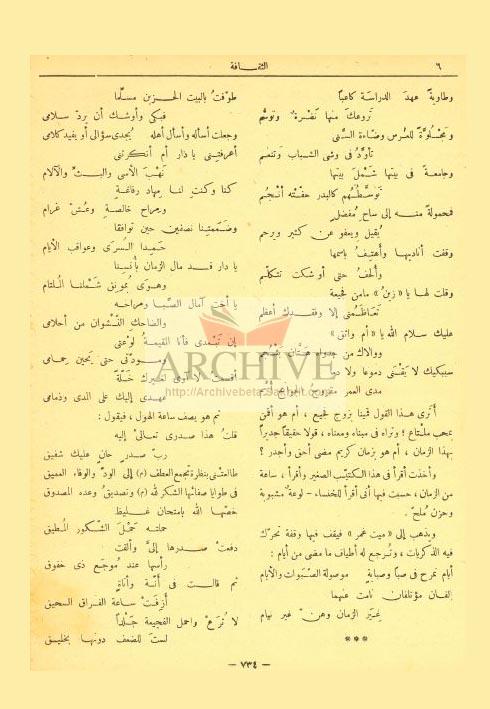 ٦
الثقافة
وطاوية عهد الدراسة كاعباً
تروعك منها نضرة وتوسُّم
ومجلوَّة للعرس وضاءة السَّنى
تأوَّد في وشى الشباب وتنعم
وجامعة في بيتها شمل بيتها
توسطهم كالبدر حفَّته أنجم
محمولة منه إلى ساح مُفضل
يُقيل ويعفو عن كثير ويرحم
وقفت أناديها وأهتف باسمها
وألحف حتى أوشكت تتكلم
وقلت لها يا «زين» مامن فجيعة
تعاظمنى إلا وفقدك أعظم
عليك سلام الله يا «أم واثق»
ووالاك من جدواه هتَّان
سنبكيك لا يقنى دموعا ولا دماً
مدى العمر مقروح الجوانح
أترى هذا القول قمينا بزوج فجيع ، أم هو أقمن
بمحب ملتاع ؛ وتراه في مبناه ومعناه ، قولا حقيقاً جديراً
بهذا الزمان ، أم هو بزمن كريم مضى أحق وأجدر ؟
وأخذت أقرأ في هذا الكتيّب الصغير وأقرأ ، ساعة
من الزمان ، حسبت فيها أنى أقرأ للخنساء - لوعة مشبوبة
وحزن مُلحّ .
ويذهب إلى «ميت غمر» فيقف فيها وقفة تحرّك
فيه الذكريات ، وتُرجع له أطياف ما مضى من أيام :
أيام نمرح في صبا وصبابة موصولة الصَّبوات والأيام
إلفان مؤتلفان نامت عنهما
غِيَر الزمان وهنّ غير نيام
***
طوّفتُ بالبيت الحزين مسلِّما
فبكى وأوشك أن يردّ سلامى
وجعلت أسأله وأسأل أهله يُجدى سؤالى أو يفيد كلامى
أعرفتنى يا دار أم أنكرتنى
نهب الأسى والبثّ والآلام
كنا وكنتِ لنا مهاد رفاغة
ومراح خالصة وعش غرام
وضممتِنا نصفين حين توافقا
حمِدا السرى وعواقب الأيام
يا دار قد مال الزمان بأنسنا
وهوى بمورق شملنا الملتام
يا أخت آمال الصبا ومراحه
والضاحك النشوان من أحلامى
إن تبعدى فأنا القيمة لوعتى
ومودّتى حتى يحين حمامى
أقسمت لا آوى لغيرك خلّة
مُهدى إليك على الندى وذمامى
ثم هو يصف ساعة الهول ، فيقول :
قلتُ هذا صدرى تعالىْ إليه
ربّ صدر حان عليك شفيق
طالعتنى بنظرة تجمع العطف (م) إلى الودّ والوفاء العميق
في طوايا صفائها الشكر لله (م) وتصديق وعده المصدوق
خصّها الله بامتحان غليظ
حملته حمل الشكور المطيق
دفعتْ صدرها إلىَّ وألقت
رأسها عند مُوجَع ذى خفوق
ثم قالت في أنَّة وأناةٍ
أزِفتْ ساعة الفراق السحيق
لا تُرَعْ واحمل الفجيعة جَلْداً
لستَ للضعف دونها بخليق
- ٧٣٤ -
ARCHIVE
http://Archivebeta.Sakhrit.com